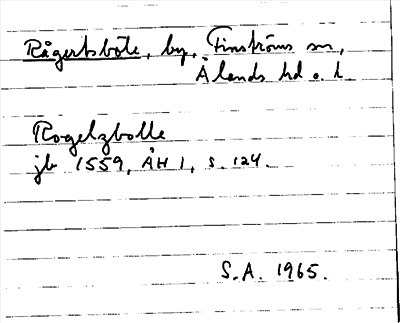 Rågertsböte, by, Finströms sn,
Ålands hd o. l.
Rogelzbolle
jb 1559, ÅH 1, s. 124.
S.A. 1965.